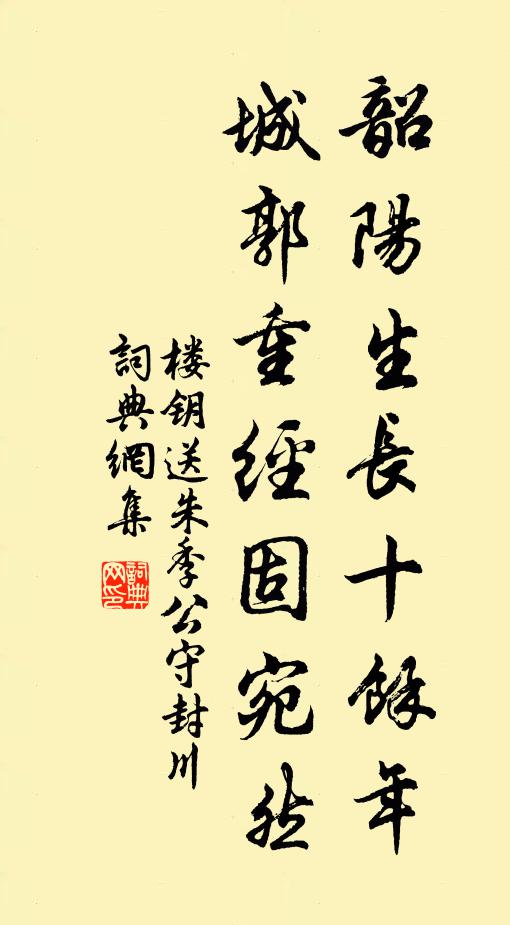 韶陽生長十餘年
城郭重經固宛然
楼钥送朱季公守封川
詞典網集
詞典網印